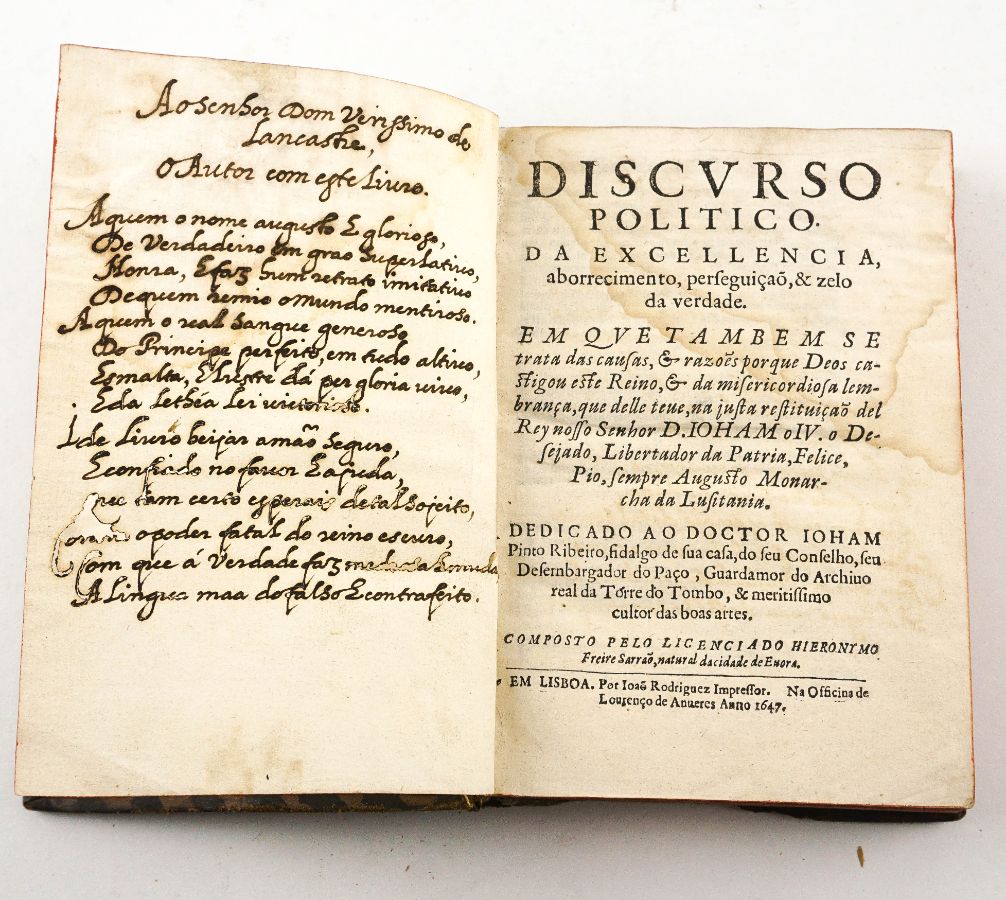 Ao senhor Dom Verissimo de
Lancastre,
O Autor com este Livro.
A quem o nome augusto E glorioso,
De Verdadeiro em grao superlativo,
Honra, E faz hum retrato imitativo
De quem remio o mundo mentiroso.
A quem o real sangue generoso
Do Principe perfeito, em tudo altivo,
Esmalta, E lustre dá per gloria vivo,
E da Lethéa Lei victorioso.
Ide Livro beijar a mão seguro,
E confiado no favor E ajuda,
que tam certo esperais de tal sojeito,
o poder fatal do reino escuro,
Com que á Verdade faz muda
A Lingua maa do falso E contrafeito.
DISCVRSO
POLITICO.
DA EXCELLENCIA,
aborrecimento, perseguiçaõ, & zelo
da verdade.
EM QVE TAMBEM SE
trata das causas, & razoẽs porque Deos ca-
stigou este Reino, & da misericordiosa lem-
brança, que delle teue, na justa restituiçaõ del
Rey nosso Senhor D. IOHAM o IV. o De-
sejado, Libertador da Patria, Felice,
Pio, sempre Augusto Monar-
cha da Lusitania.
DEDICADO AO DOCTOR IOHAM
Pinto Ribeiro, fidalgo de sua casa, do seu Conselho, seu
Desembargador do Paço, Guardamor do Archiuo
real da Torre do Tombo, & meritissimo
cultor das boas artes.
COMPOSTO PELO LICENCIADO HIERONYMO
Freire Sarraõ, natural da cidade de Euora.
EM LISBOA. Por Ioaõ Rodriguez Impressor. Na Officina de
Lourenço de Anueres Anno 1647.